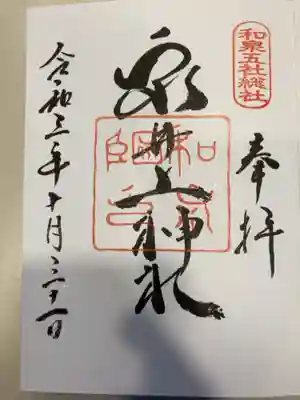 和泉五社総社
奉拝
泉井上神社
令和三年十月三十一日